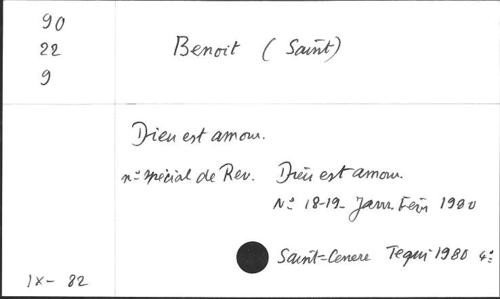 90
22
9
Benoit ( Saint)
Dieu est amour.
n° spécial de Rev. Dieu est amour.
N° 18-19- Janv. Fév 1980
Saint-Cenere Tequi 1980 4°
IX- 82